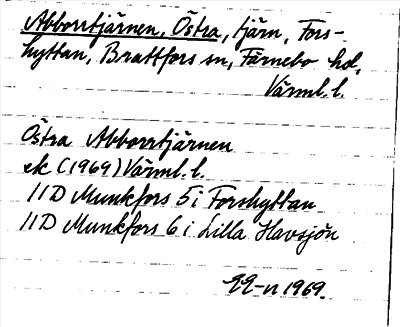 Abborrtjärnen, Östra, tjärn, Fors-
hyttan, Brattfors sn, Färnebo hd,
Värml. l.
Östra Abborrtjärnen
ek (1969) Värml. l.
11D Munkfors 5 i Forshyttan
11D Munkfors 6 i Lilla Havsjön
1969.